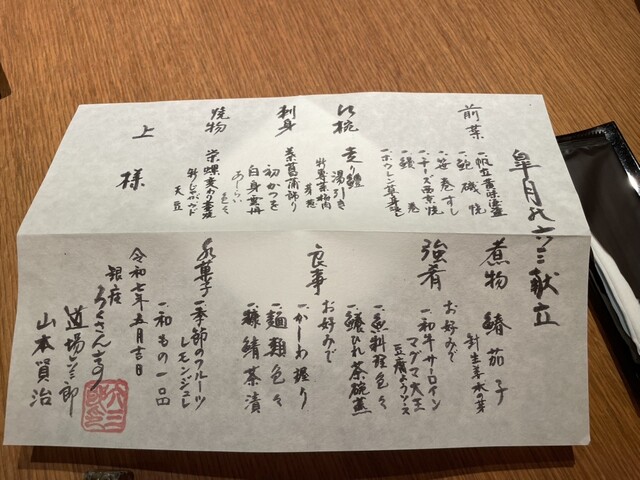 皐月の六三献立
前菜
一、帆立
一、鮑磯焼
一、笹巻すし
一、チーズ西京焼
一、鰻巻
一、ホウレン草
椀
走り鱧
湯引き
刺身
菖蒲飾り
初かつを
白身雲丹
あしらい色々
焼物
栄螺変わり壺焼
天豆
上様
煮物
鰊茄子
針生姜木の芽
強肴
お好みで
一、和牛サーロイン
マグマ大王
豆腐ようソース
一、魚料理色々
一、鱶ひれ茶碗蒸
食事
お好みで
一、かしわ握り
一、麺類色々
一、鯖茶漬
水菓子
一、季節のフルーツ
レモンジュレ
一、和もの一品
令和七年五月吉日
銀座
ろくさん亭
道場六三郎
山本賢治